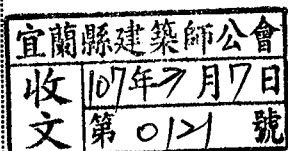 宜蘭縣建築師公會
收文
107年2月7日
第0121號